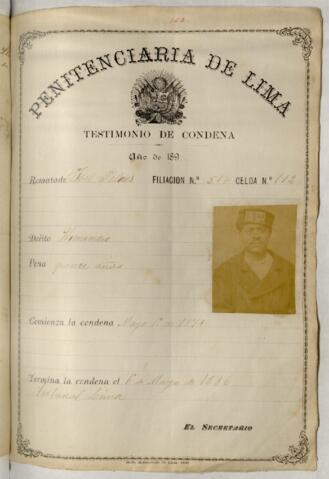 PENITENCIARIA DE LIMA
TESTIMONIO DE CONDENA
Año de 189
Rematado José FILIACION N.º 518 CELDA N.º 112
Delito Homicidio
Pena quince años
Comienza la condena Mayo 1º de 1871
Termina la condena el 1º de Mayo de 1886
Tribunal Lima
EL SECRETARIO